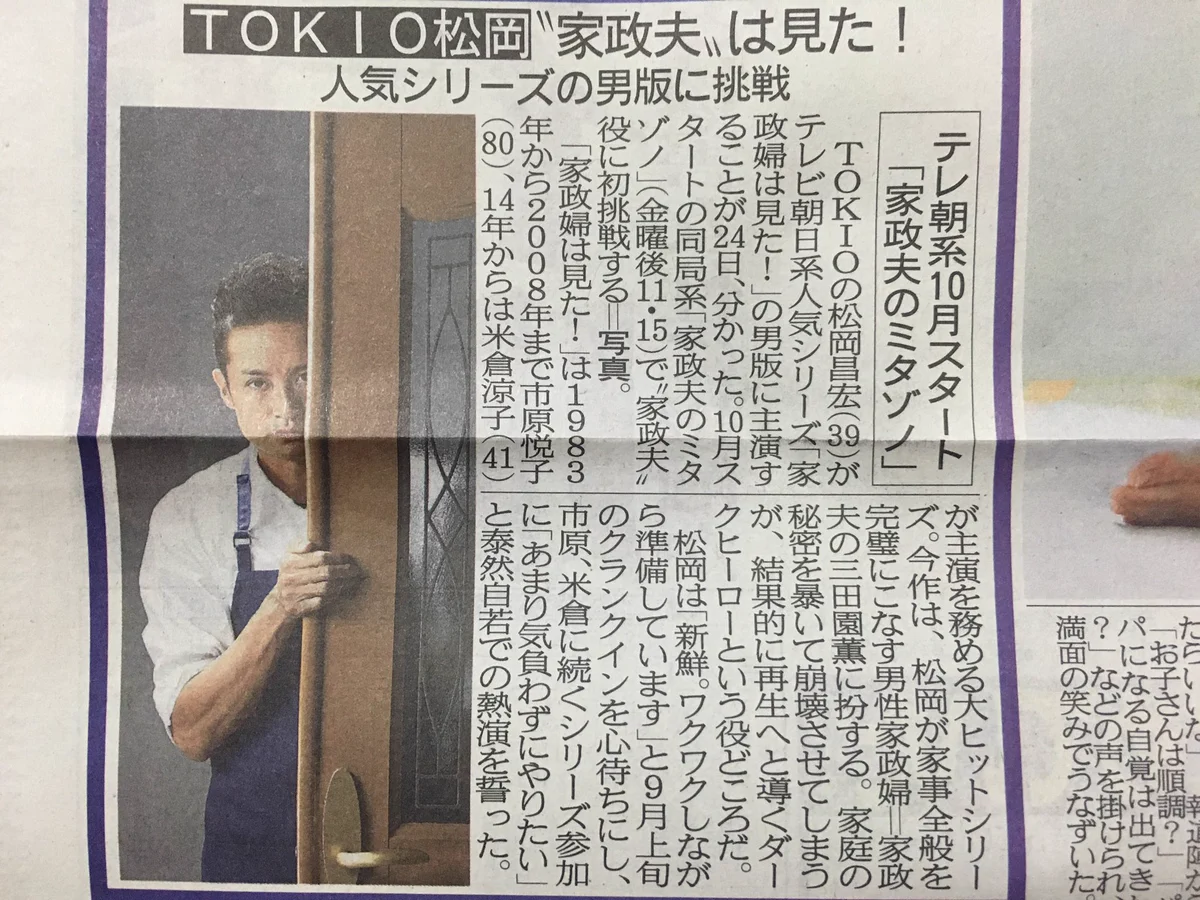 TOKIO松岡〝家政夫〟は見た!
人気シリーズの男版に挑戦
テレ朝系10月スタート
「家政夫のミタゾノ」
TOKIOの松岡昌宏(39)が
テレビ朝日系人気シリーズ「家
政婦は見た!」の男版に主演す
ることが24日、分かった。10月ス
タートの同局系「家政夫のミタ
ゾノ」(金曜後11・15)で〝家政夫〟
役に初挑戦する=写真。
「家政婦は見た!」は1983
年から2008年まで市原悦子
(80)、14年からは米倉涼子(41)
が主演を務める大ヒットシリー
ズ。今作は、松岡が家事全般を
完璧にこなす男性家政婦=家政
夫の三田園薫に扮する。家庭の
秘密を暴いて崩壊させてしまう
が、結果的に再生へと導くダー
クヒーローという役どころだ。
松岡は「新鮮。ワクワクしなが
ら準備しています」と9月上旬
のクランクインを心待ちにし、
市原、米倉に続くシリーズ参加
に「あまり気負わずにやりたい」
と泰然自若での熱演を誓った。
たらいいな」
「お子さんは順調?」
パパになる自覚は出てき
?」などの声を掛けられ、
満面の笑みでうなずいた。